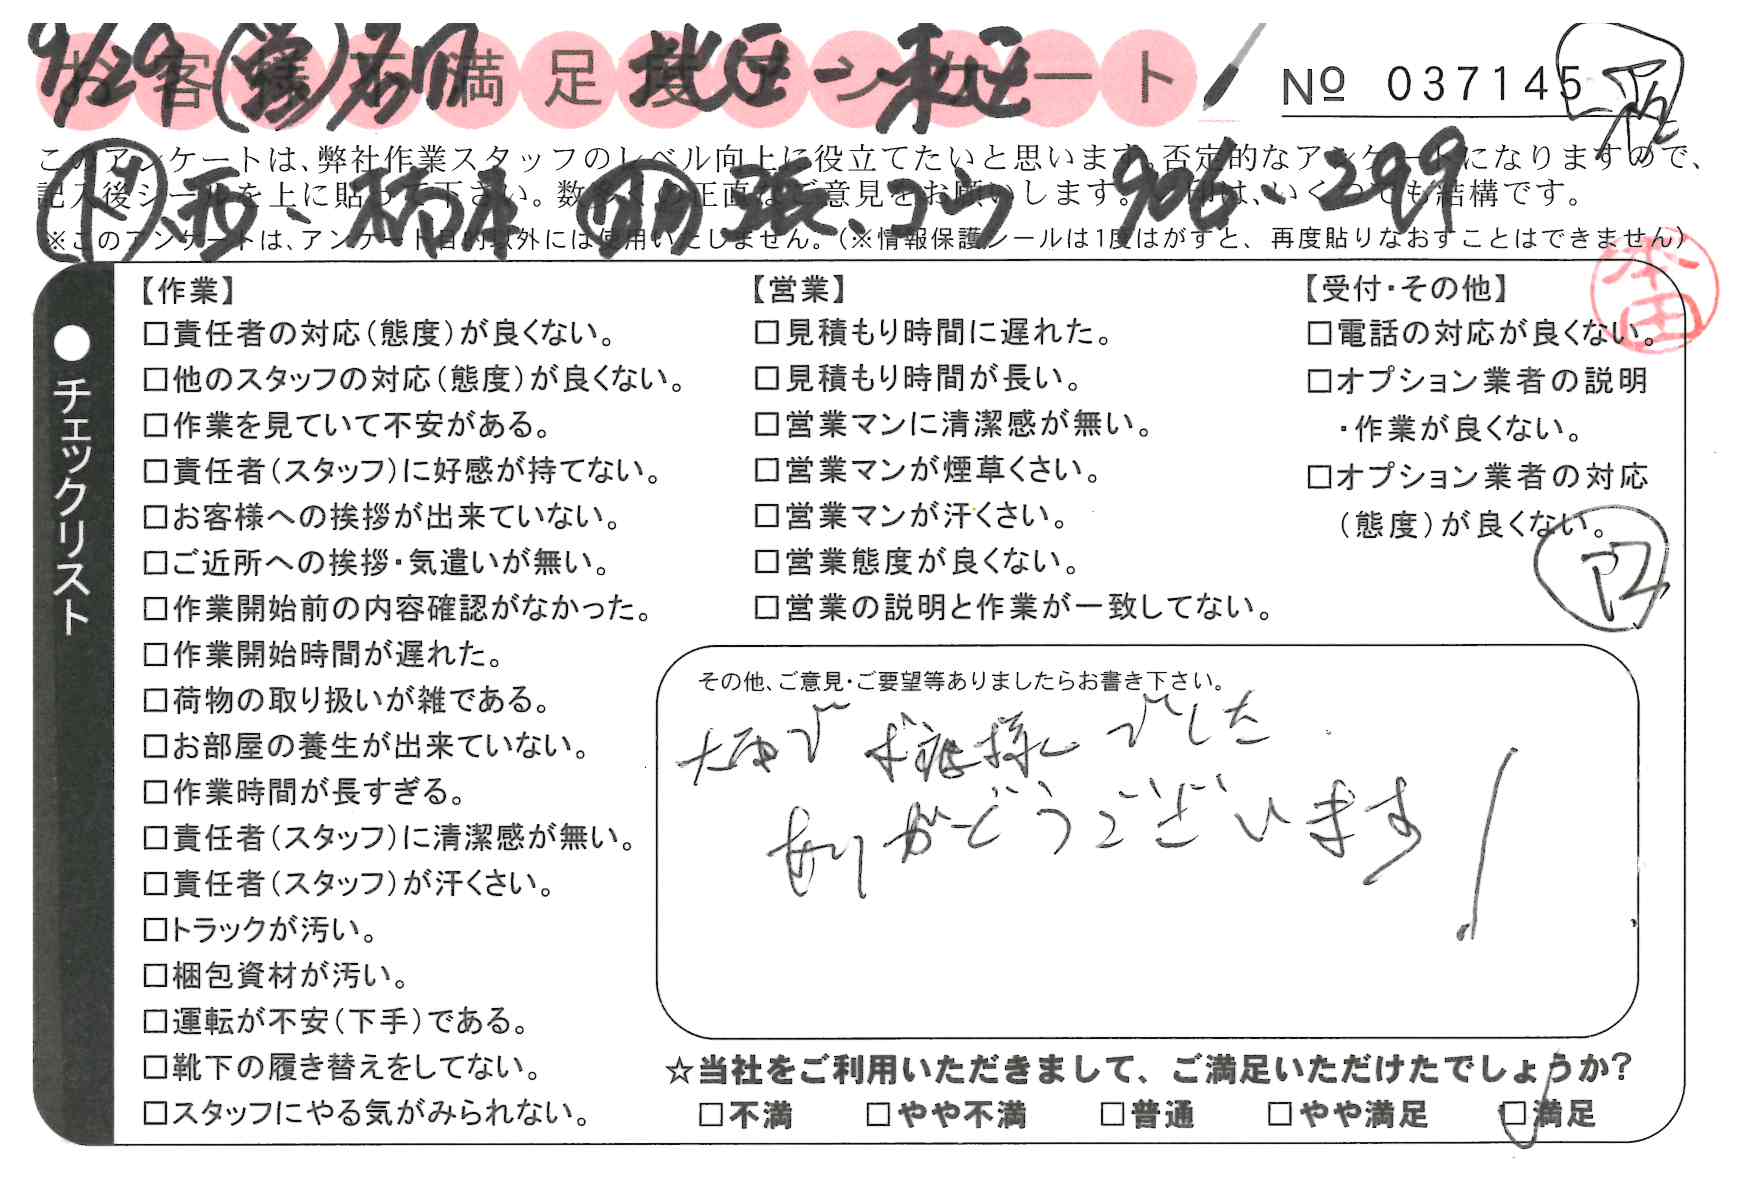 お客様不満足度アンケート
№ 037145
9/29(営)石川 北区-末区
このアンケートは、弊社作業スタッフのレベル向上に役立てたいと思います。否定的なアンケートになりますので、
記入後シールを上に貼って下さい。数多くの正直なご意見をお願いします。
印は、いくつでも結構です。
ド 西、
コウ 906、299
※このアンケートは、アンケート目的以外には使用いたしません。(※情報保護シールは1度はがすと、再度貼りなおすことはできません)
本田
●チェックリスト
【作業】
□責任者の対応(態度)が良くない。
□他のスタッフの対応(態度)が良くない。
□作業を見ていて不安がある。
□責任者(スタッフ)に好感が持てない。
□お客様への挨拶が出来ていない。
□ご近所への挨拶・気遣いが無い。
□作業開始前の内容確認がなかった。
□作業開始時間が遅れた。
□荷物の取り扱いが雑である。
□お部屋の養生が出来ていない。
□作業時間が長すぎる。
□責任者(スタッフ)に清潔感が無い。
□責任者(スタッフ)が汗くさい。
□トラックが汚い。
□梱包資材が汚い。
□運転が不安(下手)である。
□靴下の履き替えをしてない。
□スタッフにやる気がみられない。
【営業】
□見積もり時間に遅れた。
□見積もり時間が長い。
□営業マンに清潔感が無い。
□営業マンが煙草くさい。
□営業マンが汗くさい。
□営業態度が良くない。
□営業の説明と作業が一致してない。
【受付・その他】
□電話の対応が良くない。
□オプション業者の説明
・作業が良くない。
□オプション業者の対応
(態度)が良くない。
その他、ご意見・ご要望等ありましたらお書き下さい。
でした
ありがどうございます!
☆当社をご利用いただきまして、ご満足いただけたでしょうか?
□不満 □やや不満 □普通 □やや満足 □満足